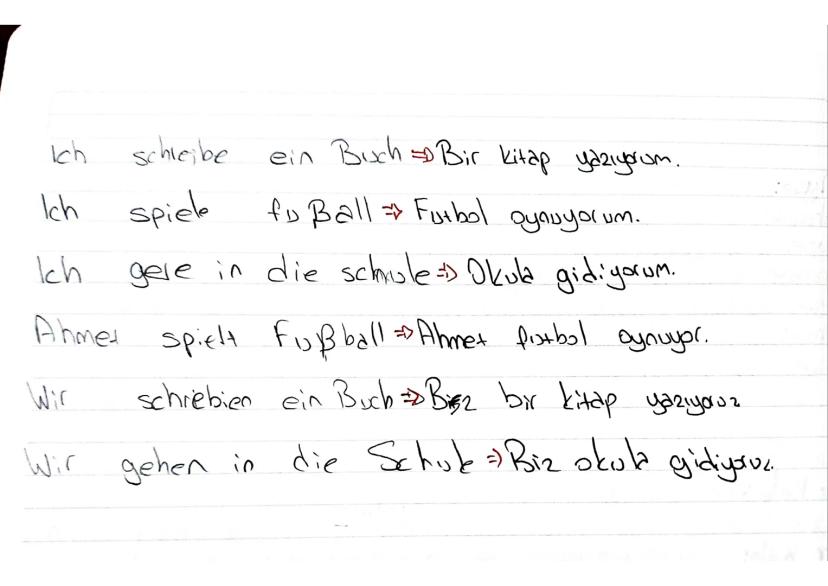 Ich schreibe ein Buch ⇒ Bir kitap yazıyorum.
Ich spiele fußball ⇒ Futbol oynuyorum.
Ich gehe in die schule ⇒ Okula gidiyorum.
Ahmet spielt Fußball ⇒ Ahmet futbol oynuyor.
Wir schriebien ein Buch ⇒ Biz bir kitap yazıyoruz
Wir gehen in die Schule ⇒ Biz okula gidiyoruz.